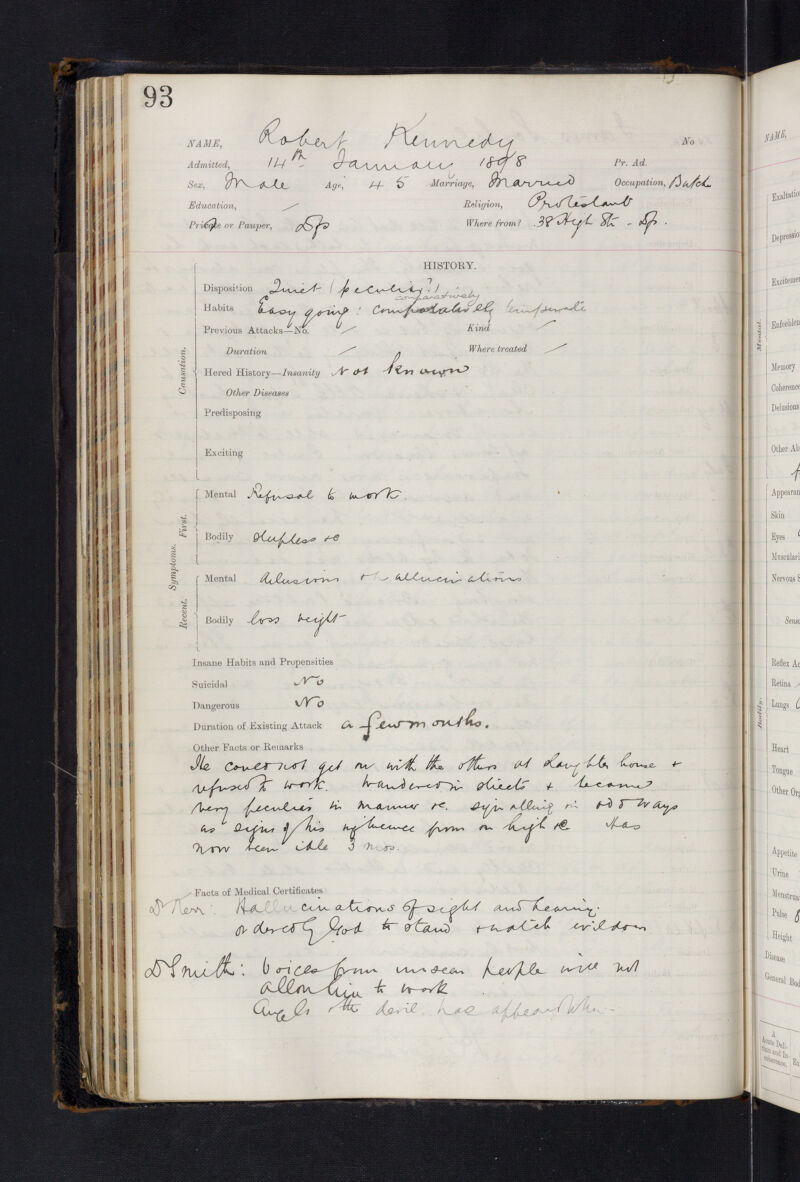 93
NAME, Robert Kennedy No
Admitted, 14th January 1898 Pr. Ad.
Sex, Male Age, 45 Marriage, Married Occupation, Butch
Education, / Religion, Protestant
Private or Pauper, Dfs Where from? 38 High St. - Dfs.
HISTORY.
Disposition Quiet (peculiar?)
comparatively
Habits Easy going: comparatively temperate
Previous Attacks—No. / Kind /
Duration / Where treated /
Causation.
Hered History—Insanity Not known
Other Diseases
Predisposing
Exciting
Symptoms.
First.
Mental Refusal to work.
Bodily Sleepless &c
Recent.
Mental delusions & hallucinations
Bodily loss weight
Insane Habits and Propensities
Suicidal No
Dangerous No
Duration of Existing Attack a few months.
Other Facts or Remarks
He could not get on with the others at slaughter house &
refused to work. Wandered in streets & became
very peculiar in manner &c. signalling in odd ways
as signs of his influence from on high &c Has
now been idle 3 mos.
Facts of Medical Certificates
Dr Kerr: Hallucinations of sight and hearing.
ordered by God to stand & watch evil doers
Dr Smith: Voices from unseen people will not
allow him to work
Angels & the devil has appeared
NAME,
Mental.
Exaltatio
Depressio
Excitemen
Enfeeblem
Memory
Coherence
Delusions
Other Ab
Bodily.
Appearan
Skin
Eyes
Musculari
Nervous S
Sens
Reflex Ac
Retina
Lungs
Heart
Tongue
Other Org
Appetite
Urine
Menstrua
Pulse
Height
Disease
General Bod
A
Acute Deli-
rium and In-
coherence.